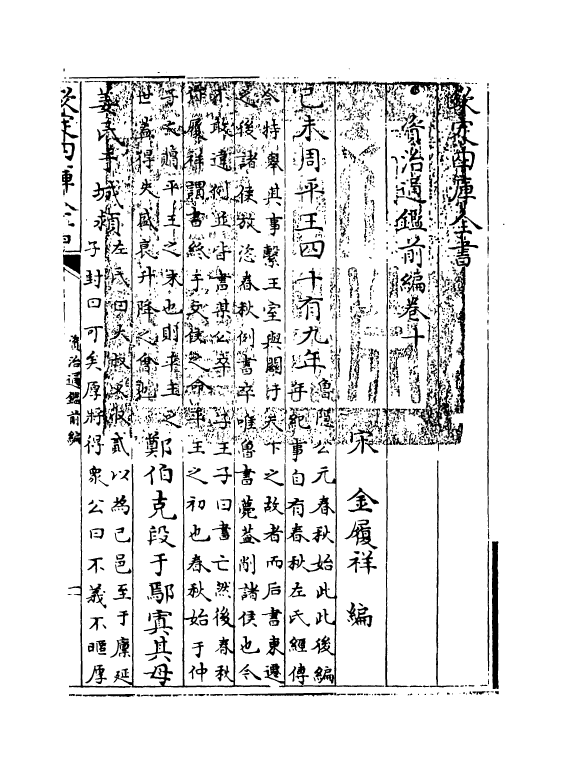 欽定四庫全書
資治通鑑前編卷十
宋 金履祥 編
己未周平王四十有九年魯隱公元春秋始此此後編
年紀事自有春秋左氏經傳
今特舉其事繫王室與關於天下之故者而后書東遷
之後諸侯放恣春秋例書卒唯魯書薨蓋削諸侯也今
不敢違例並皆書某公卒 子王子曰書亡然後春秋
作履祥謂書終于文侯之命平王之初也春秋始于仲
子之賵平王之末也則平王之
世蓋得失盛衰升降之會也
鄭伯克段于鄢寘其母
姜氏于城潁左氏曰大叔又收貳以為己邑至于廩延
子封曰可矣厚將得衆公曰不義不暱厚
欽定四庫全書
資治通鑑前編
一